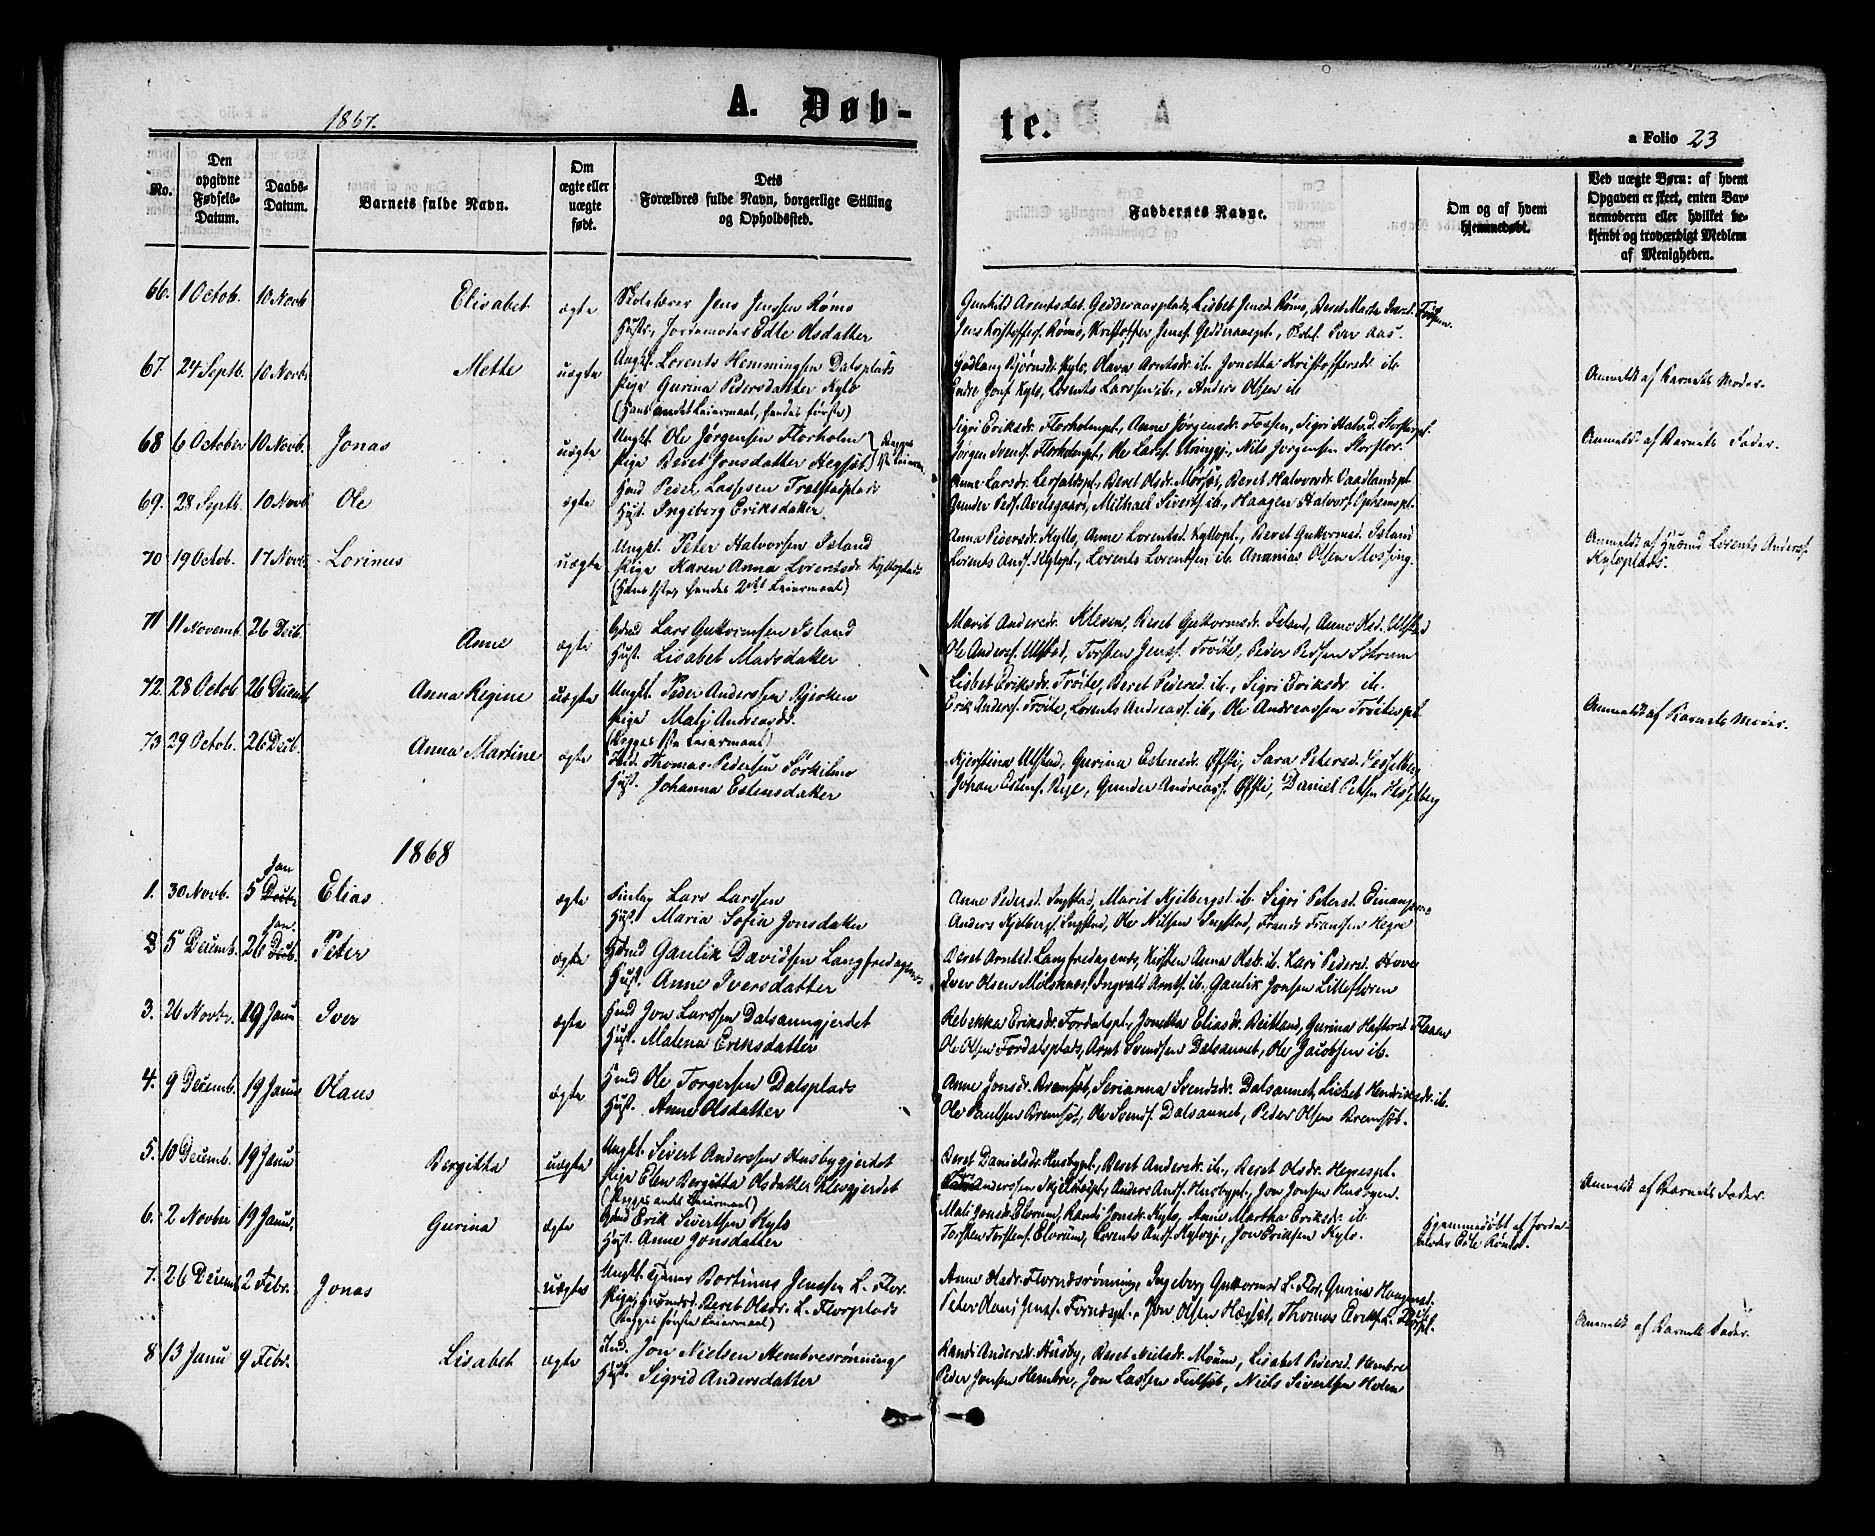 1867.
A. Døb-
te.
a Folio 23
No.
Den opgivne Fødsels-Datum.
Daabs-Datum.
Barnets fulde Navn.
Om ægte eller uægte født.
Dets Forældres fulde Navn, borgerlige Stilling og Opholdssted.
Faddernes Navne.
Om og af hvem hjemmedøbt.
Ved uægte Børn: af hvem Opgaven er skeet, enten Barnemoderen eller hvilket bekjendt og troværdigt Medlem af Menigheden.
66. 1 Octob. 10 Novb Elisabet ægte
Skolelærer Jens Jenssen Rømo
Hustr, Jordemoder Edle Olsdatter
Gunhild Arntsdat. Gedderaasplads, Lisbet Jensd. Rømo, Beret Marta Iversd. Fossen.
Jens Kristoffers. Rømo, Kristoffer Jenss. Gedderaaspl., Peter Aas.
67. 24 Septb. 10 Novb. Mette uægte
Ungk. Lorents Hemmingsen Dalsplads
Pige Gurina Pedersdatter Kylo
(Hans andet Leiermaal, hendes første)
Gødlaug Bjørnsdr. Kylo, Olava Arntsdr. ib. Jonetta Kristoffersdr. ib.
Endre Jons. Kylo, Lorents Larssen ib., Anders Olsen ib
Anmeldt af Barnets Moder.
68 6 October 10 Novb. Jonas uægte
Ungk. Ole Jørgensen Florholm
Pige Beret Jonsdatter Hegsøt.
(Begges 1ste Leierm.
Sigri Eriksdr. Florholmpl., Anne Jørgensdr. Fossen, Sigri Halvd. Storflorpl.
Jørgen Svends. Florholmpl., Ole Larss., Nils Jørgensen Storflor.
Anmeldt af Barnets Fader.
69. 28 Septb. 10 Novb Ole ægte
Hmd Peder Larssen Trælstadplads
Hust. Ingeborg Eriksdatter
Anne Larsdr. Lerfaldspl., Beret Olsdr. Morsøt, Beret Halvorsdr. Vaadlandspl.
Gunder Peds. Avelsgaard, Mikhael Siverts. ib., Haagen Halvors. Opheimspl.
70 19 Octob. 17 Novb. Lorinus uægte
Ungk. Peter Halvorsen Island
Pige Karen Anna Lorentsdr. Kyloplads
(Hans 1ste, hendes 2det Leiermaal)
Anna Pedersdr. Kyllo, Anne Lorentsd. Kylopl., Beret Guttormsd. Island
Lorents Ands. Kylopl., Lorents Lorentsen ib. Ananias Olsen Mossing.
Anmeldt af Husmd Lorents Anders. Kyloplads.
71 11 Novemb. 26 Decb. Anne ægte
Gbrmd Lars Guttormsen Island
Hust. Lisabet Madsdatter
Marit Andersdr. Kleven, Beret Guttormsdr. Island, Anne Olsd. Ulstad
Ole Anders. Ulstad, Torsten Jenss. Trøite, Peder Pedsen Sokrum
72. 28 Octob 26 Decemb. Anna Regine uægte
Ungk. Peder Anderssen Bjerken
Pige Mali Andreasdr.
(Begges 1ste Leiermaal)
Lisbet Eriksdr. Trøite, Beret Pedersd. ib., Sigri Eriksdr. ib.
Erik Anders. Trøite, Lorents Andreass. ib., Ole Andreassen Trøitespl.
Anmeldt af Barnets Moder.
73 29 Octob. 26 Decb. Anna Martine ægte
Thomas Pedersen Sørkilmo
Hust. Johanna Estensdatter
Kjerstina Ulstad, Gurina Estensdr. Øfsti, Sara Petersd. Hesselberg
Johan Estens. Rye, Gunder Andreass. Øfsti, Daniel Petsen Hesselberg
1868
1. 30 Novb. 5 Decbr Jan Elias ægte
Lars Larssen
Hust. Maria Sofia Jonsdatter
Anne Pedersd. Ingstad, Marit Kjelbergsd. ib. Sigri Petersd. Einangsmo
Anders Kjelbergs. Ingstad, Ole Nilsen Ingstad, Frands Fransen Hegre
2 5 Decemb. 26 Decb. Jan. Peter ægte
Gbrmd Gaulik Davidsen Langfredagsnes.
Hust. Anne Iversdatter
Beret Arntsd. Langfredagsnes, Kirsten Anna Olsd. ib. Kari Pedersd. Hove
Iver Olsen Mølsknæs, Ingvald Arnts. ib., Gaulik Jonsen Litlefloren
3. 26 Novbr. 19 Janu Iver ægte
Hmd Jon Larssen Dalsaungjerdet
Hust. Malena Eriksdatter
Rebekka Eriksdr. Fordalspl., Jonetta Eliasdr. Reitland, Gurina Hafsteinsd. Flaaen
Ole Olsen Fordalsplads, Arnt Svendsen Dalsaunet, Ole Jacobsen ib.
4. 9 Decemb. 19 Janu Olaus ægte
Hmd Ole Torgersen Dalsplads
Hust. Anne Olsdatter
Anne Jonsdr. Bremsøt, Serianna Svendsdr. Dalsaunet, Lisbet Henriksdr. ib.
Ole Paulsen Bremsøt, Ole Svends. Dalsaunet, Peder Olsen Bremsøt.
5. 10 Decemb. 19 Janu Bergitta uægte
Ungk. Sivert Anderssen Husbygjerdet
Pige Elen Bergitta Olsdatter Klevgjerdet
(Begges andet Leiermaal)
Beret Danielsdr. Husbypl., Beret Andersdr. ib., Beret Olsdr. Hegrespl.
Anderssen Skjelstadpl., Anders Ands. Husbypl., Jon Jonsen Husbyen.
Anmeldt af Barnets Fader.
6. 2 Novber 19 Janu, Gurina ægte
Gbmd Erik Sivertsen Kylo
Hust. Anne Jonsdatter
Mali Jonsdr. Elvrum, Randi Jonsdr. Kylo, Anne Martha Eriksdr. ib
Torsten Torstens. Elvrum, Lorents Ands. Kylogj., Jon Eriksen Kylo.
Hjemmedøbt af Jordemoder Edle Rømo.
7. 26 Decem. 2 Febr. Jonas uægte
Ungk. Bortinus Jenssen L. Flor.
Pige, Beret Olsdr. L. Florplads
(Begges første Leiermaal)
Anne Olsdr. Flornesrønning, Ingeborg Guttormsd L. Flor, Gurina Haagensd.
Peter Olaus Jenss. Fornespl., Jon Olsen Hægsøt, Thomas Eriks. L. Florpl.
Anmeldt af Barnets Fader.
8 13 Janu 9 Febr. Lisabet ægte
Ind. Jon Nielsen Hembresrønning
Hust. Sigrid Andersdatter
Randi Andersdr. Husby, Beret Nielsdr. Moum, Lisabet Pedersd. Hembre
Peder Jonsen Hembre, Jon Larssen Fulsøt, Niels Sivertsen Holm